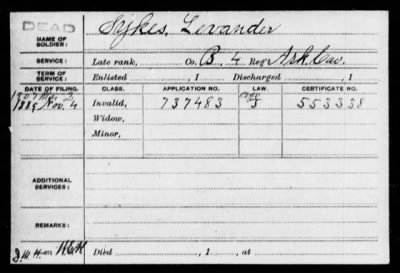 DEAD
NAME OF SOLDIER: Sykes, Levander
SERVICE: Late rank, Co. B, 4 Reg't Ark Cav.
TERM OF SERVICE: Enlisted , 1 Discharged , 1
DATE OF FILING. CLASS. APPLICATION NO. LAW. CERTIFICATE NO.
1889 Nov. 4 Invalid, 737483 553338
Widow,
Minor,
ADDITIONAL SERVICES:
REMARKS:
Died , 1 , at